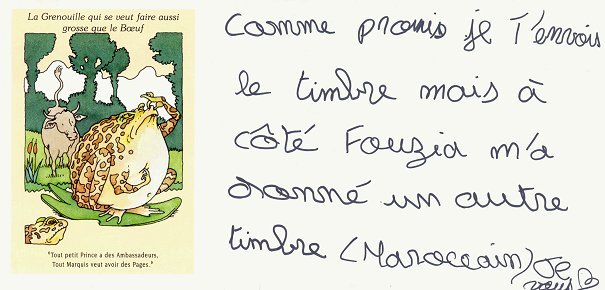 La Grenouille qui se veut faire aussi
grosse que le Bœuf
"Tout petit Prince a des Ambassadeurs,
Tout Marquis veut avoir des Pages."
Comme promis je T'envois
le timbre mais à
côté Fouzia m'a
donné un autre
timbre (Maroccain) Je
vous